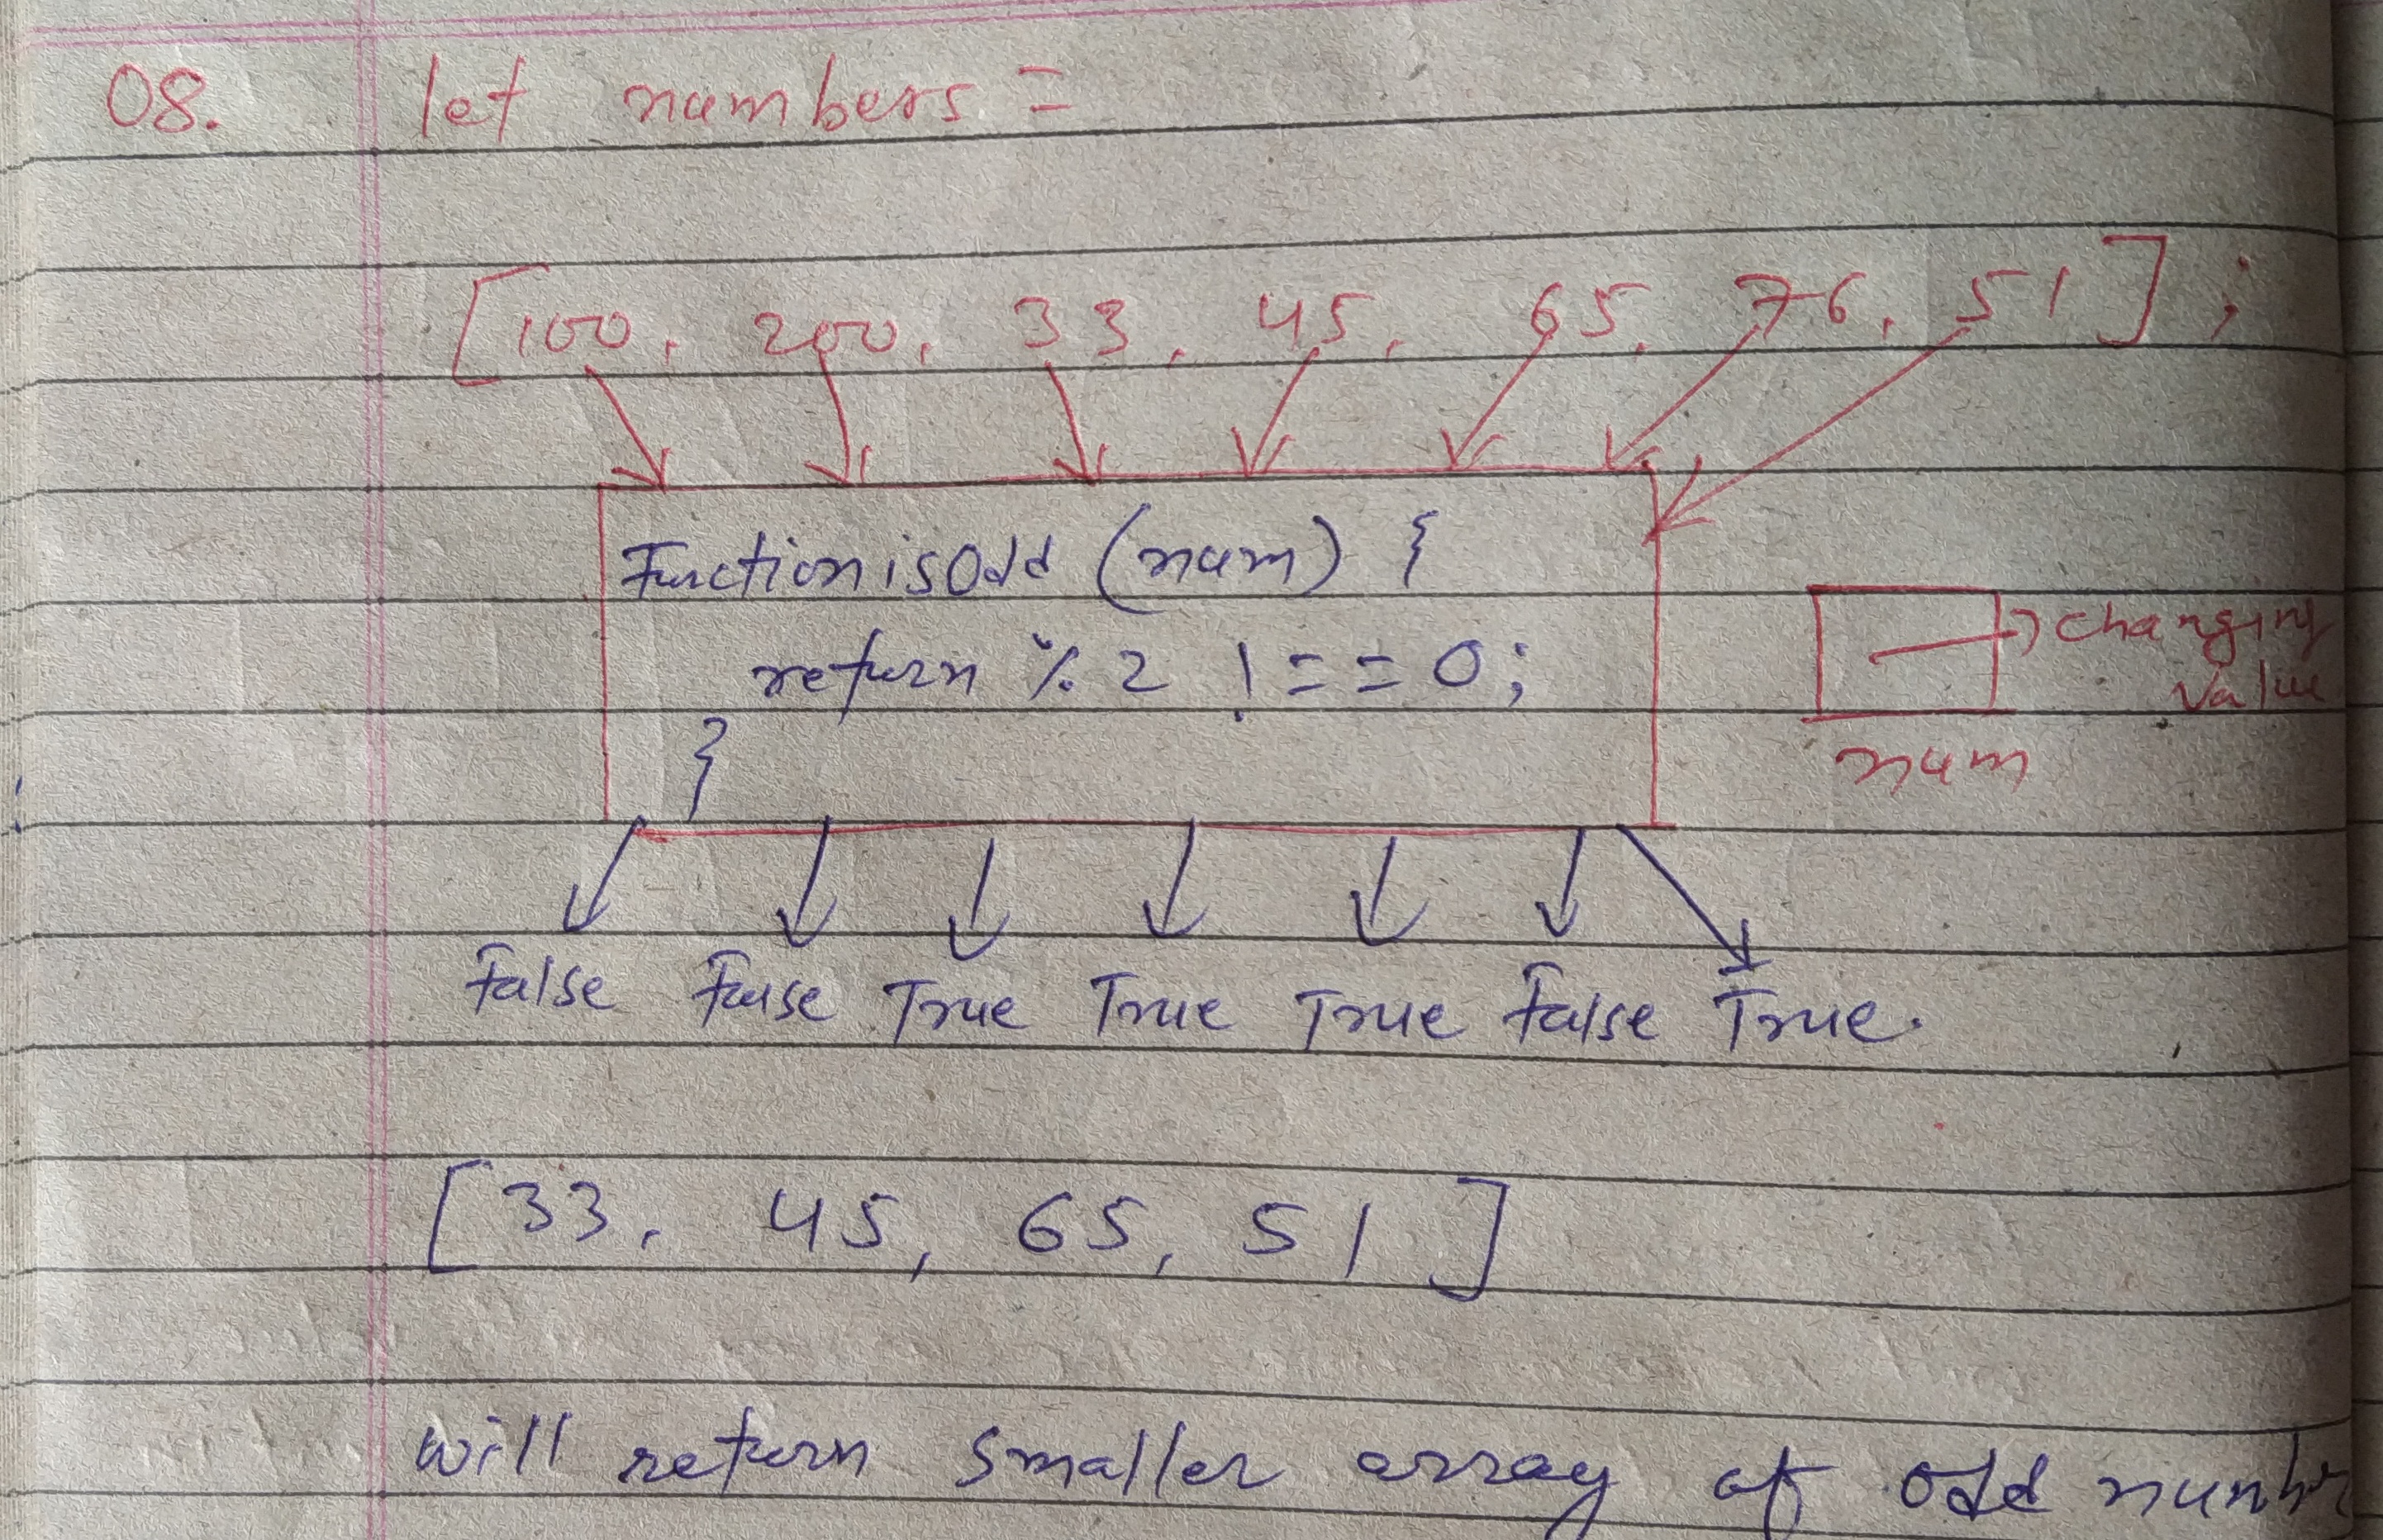 08. let numbers =
[100, 200, 33, 45, 65, 76, 51];
Function isOdd (num) {
return % 2 !== 0;
}
changing
value
num
False False True True True False True.
[33, 45, 65, 51]
will return smaller array of odd number